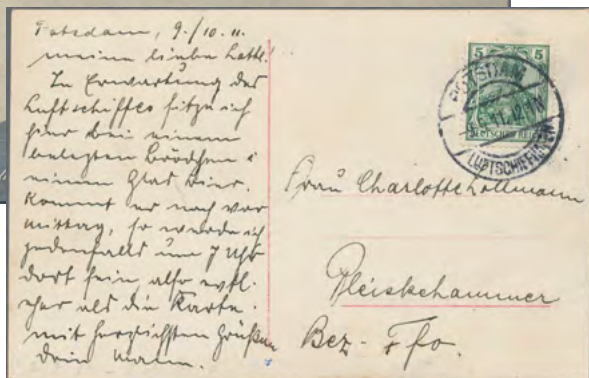 Potsdam, 9./10. 11.
meine liebe Lottl!
In Erwartung des
Luftschiffes sitze ich
hier bei einem
belegten Brödchen &
einem Glas Bier.
Kommt er noch vor
mittag, so werde ich
jedenfalls um 7 Uhr
dort sein also evtl.
eher als die Karte.
mit herzlichsten Grüßen
Dein Mann.
5 5
DEUTSCHES REICH
POTSDAM
LUFTSCHIFFHAFEN
Frau Charlotte Lollmann
Pleiskehammer
Bez. Ffo.